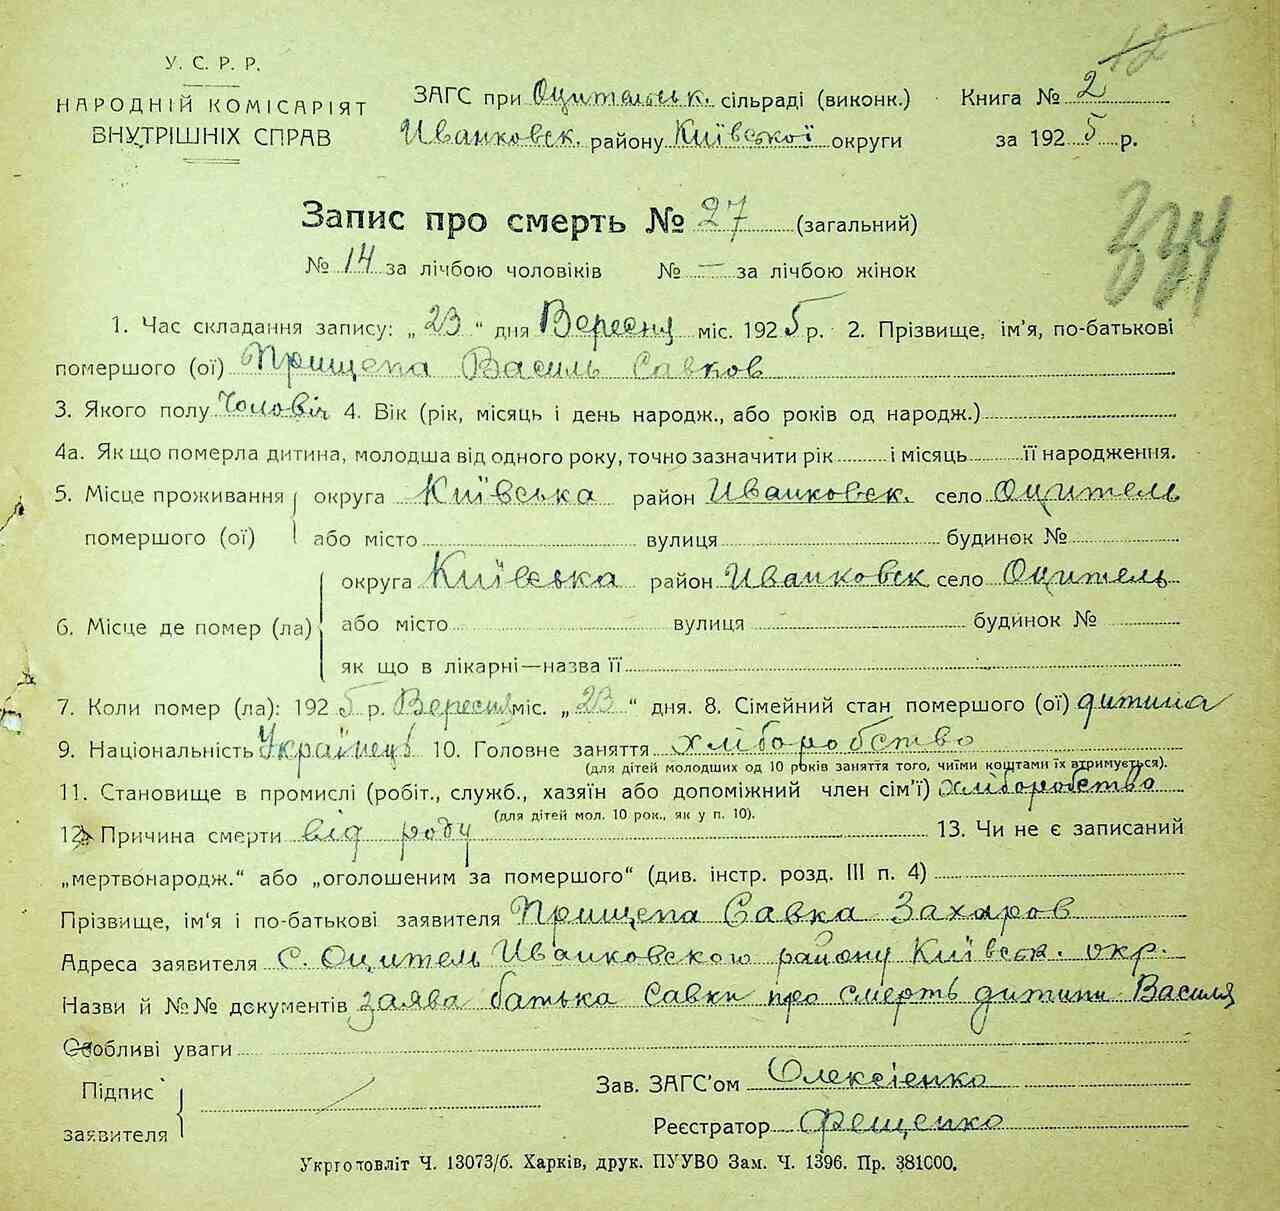 12
У. С. Р. Р.
НАРОДНІЙ КОМІСАРІЯТ
ВНУТРІШНІХ СПРАВ
ЗАГС при Оцительськ. сільраді (виконк.)
Иванковск. району Київської округи
Книга № 2
за 1925 р.
Запис про смерть № 27 (загальний)
№ 14 за лічбою чоловіків № — за лічбою жінок
334
1. Час складання запису: „23“ дня Вересня міс. 1925 р. 2. Прізвище, ім’я, по-батькові
помершого (ої) Прищепа Василь Савков
3. Якого полу Чоловіч 4. Вік (рік, місяць і день народж., або років од народж.)
4а. Як що померла дитина, молодша від одного року, точно зазначити рік і місяць її народження.
5. Місце проживання помершого (ої) округа Київська район Иванковск. село Оцитель
або місто вулиця будинок №
6. Місце де помер (ла) округа Київська район Иванковск село Оцитель
або місто вулиця будинок №
як що в лікарні—назва її
7. Коли помер (ла): 1925 р. Вересня міс. „23“ дня. 8. Сімейний стан помершого (ої) дитина
9. Національність Українець 10. Головне заняття хліборобство
(для дітей молодших од 10 років заняття того, чиїми коштами їх втримується).
11. Становище в промислі (робіт., служб., хазяїн або допоміжний член сім’ї) хліборобство
(для дітей мол. 10 рок., як у п. 10).
12. Причина смерти від роду 13. Чи не є записаний
„мертвонародж.“ або „оголошеним за помершого“ (див. інстр. розд. III п. 4)
Прізвище, ім’я і по-батькові заявителя Прищепа Савка Захаров
Адреса заявителя с. Оцитель Иванковского району Київськ. окр.
Назви й №№ документів заява батька Савки про смерть дитини Василя
Особливі уваги
Підпис заявителя
Зав. ЗАГС’ом Олексієнко
Реєстратор Фещенко
Укрготовліт Ч. 13073/б. Харків, друк. ПУУВО Зам. Ч. 1396. Пр. 381000.